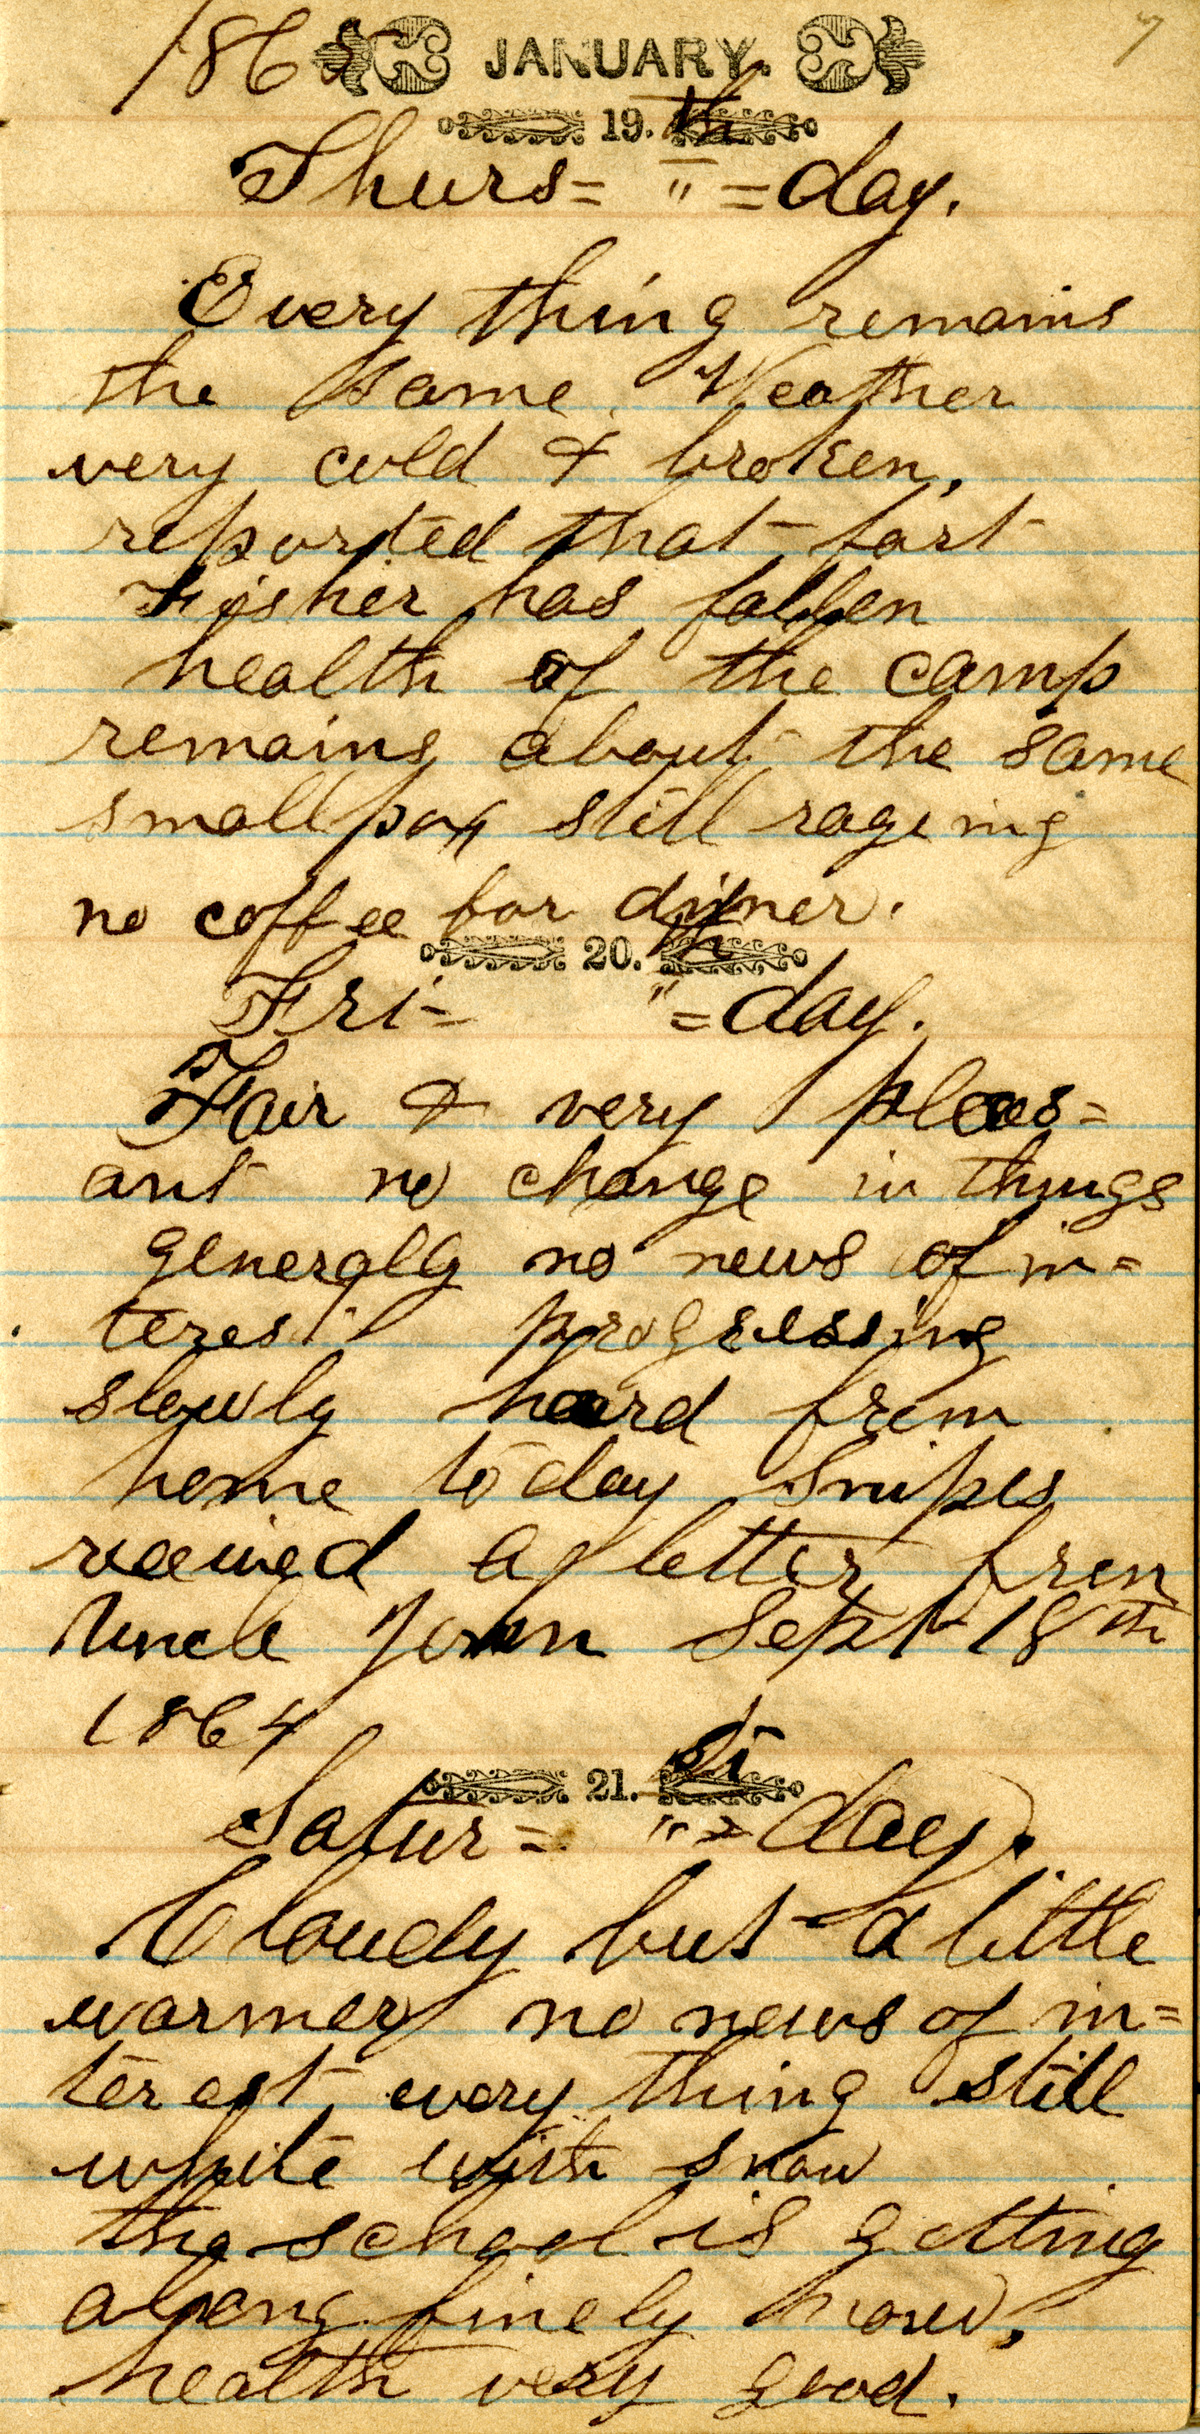 1865 JANUARY. 7
19.th
Thurs= " =day.
Every thing remains
the same. Weather
very cold & broken,
reported that fort
Fisher has fallen
health of the camp
remains about the same
small pox still rageing
no coffee for dinner.
20.th
Fri- " =day.
Fair & very pleas=
ant no change in things
generally no news of in=
terest progressing
slowly heard from
home to day Snipes
received a letter from
Uncle John Sept 18th
1864
21.st
Satur= " =day.
Cloudy but a little
warmer no news of in=
terest, every thing still
white with snow
the school is getting
along finely now,
health very good.